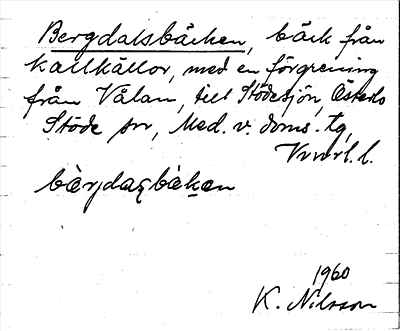 Bergdalsbäcken, bäck från
kallkällor, med en förgrening
från Vålan, till Stödesjön,
Stöde sn, Med. v. doms. tg,
Vnorl. l.
1960
K. Nilsson